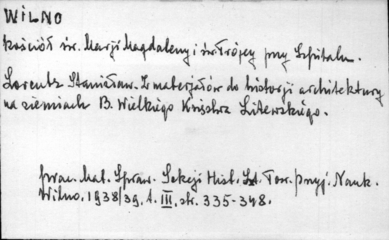 WILNO
Kościół św. Marji Magdaleny i św. Trójcy przy Szpitalu.
Lorentz Stanisław. Z materjałów do historji architektury
na ziemiach B. Wielkiego Księstwa Litewskiego.
Prac. Mat. Spraw. Sekcji Hist. Szt. Tow. Przyj. Nauk.
Wilno. 1938/39. t. III, str. 335-348.